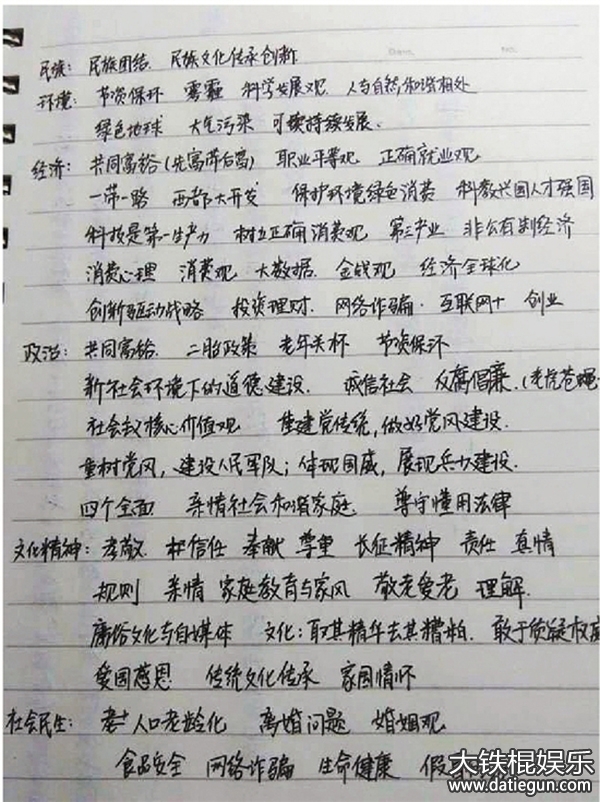 民族: 民族团结 民族文化传承创新
环境: 节资保环 雾霾 科学发展观 人与自然和谐相处
绿色地球 大气污染 可续持续发展.
经济: 共同富裕(先富带后富) 职业平等观 正确就业观
一带一路 西部大开发 保护环境绿色消费 科教兴国人才强国
科技是第一生产力 树立正确消费观 第三产业 非公有制经济
消费心理 消费观 大数据 金钱观 经济全球化
创新驱动战略 投资理财. 网络诈骗. 互联网+ 创业
政治: 共同富裕. 二胎政策 老年关怀 节资保环
新社会环境下的道德建设. 诚信社会 反腐倡廉.(老虎苍蝇
社会主义核心价值观 重建党传统,做好党风建设.
重树党风,建设人民军队;体现国威,展现兵力建设.
四个全面 亲情社会和谐家庭. 尊守懂用法律
文化精神: 孝敬. 相信任 奉献 尊重 长征精神 责任 真情
规则 亲情 家庭教育与家风 敬老爱老 理解.
庸俗文化与自媒体 文化:取其精华去其糟粕. 敢于质疑权威
爱国感恩 传统文化传承 家国情怀
社会民生: 人口老龄化 离婚问题 婚姻观
食品安全 网络诈骗 生命健康 假
大铁棍娱乐
www.datiegun.com